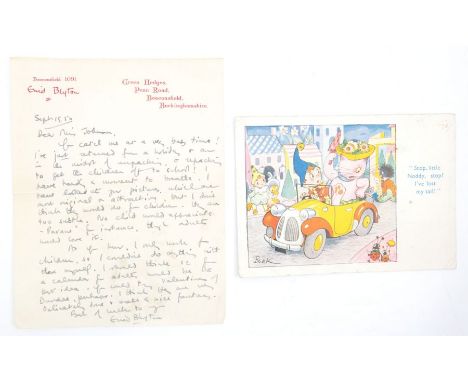 Beaconsfield 1091
Enid Blyton
Green Hedges,
Penn Road,
Beaconsfield,
Buckinghamshire.
Sept 15
Dear Miss Johnson,
You catch me at a very busy time!
I've just returned from a holiday & am
in the midst of unpacking, & repacking
to get the children off to school! I
have hardly a moment to breathe! I
have looked at your pictures, which are
and original & attractive. But I don't
think they would do for children - they are
too subtle. No child would appreciate
for instance, though adults
would love it.
As you know, I only work for
children, so I couldn't do anything with
them myself. I should think
a calendar for adults would be the
best idea. You could try Valentines of
Dundee, perhaps. I think they are very
delicately done & make a nice fantasy.
Best of luck to you
Enid Blyton
"Stop, little
Noddy, stop!
I've lost
my tail!"
Beek